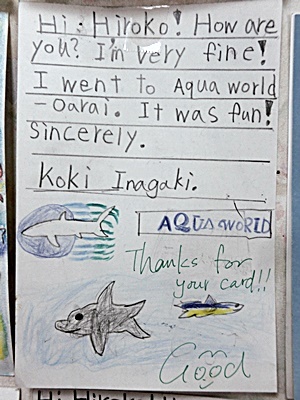 Hi, Hiroko! How are
you? I'm very fine!
I went to Aqua world
-Oarai. It was fun!
Sincerely.
Koki Inagaki.
AQUA WORLD
Thanks for
your card!!
Good